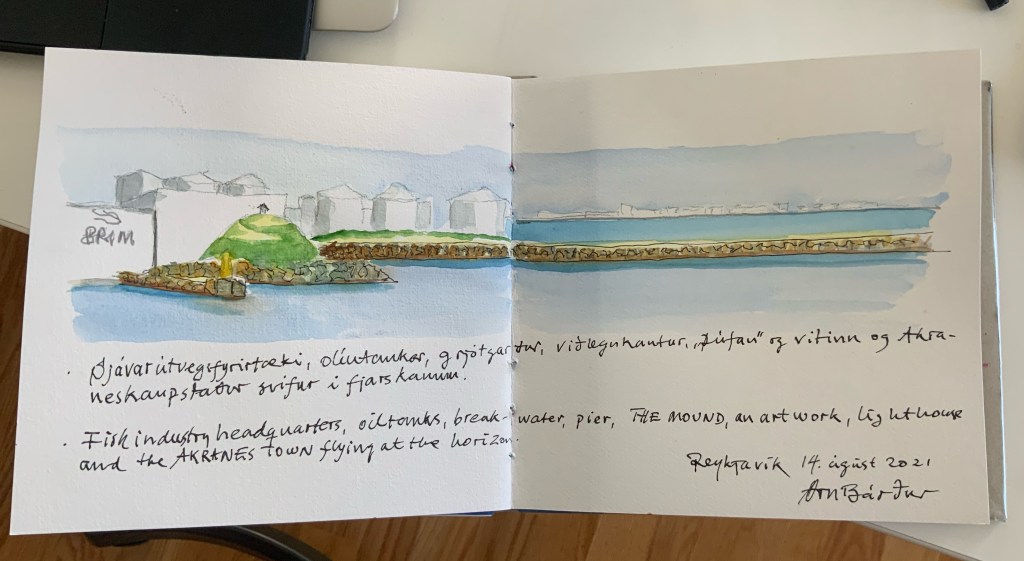 BRIM
· Sjávarútvegsfyrirtæki, olíutankar, grjótgarður, viðlegukantur, „Þúfan" og vitinn og Akra-
neskaupstaður svífur í fjarskanum.
· Fish industry headquarters, oiltanks, break-water, pier, THE MOUND, an art work, lighthouse
and the AKRANES TOWN flying at the horizon.
Reykjavík 14. ágúst 2021
Örn Bárður